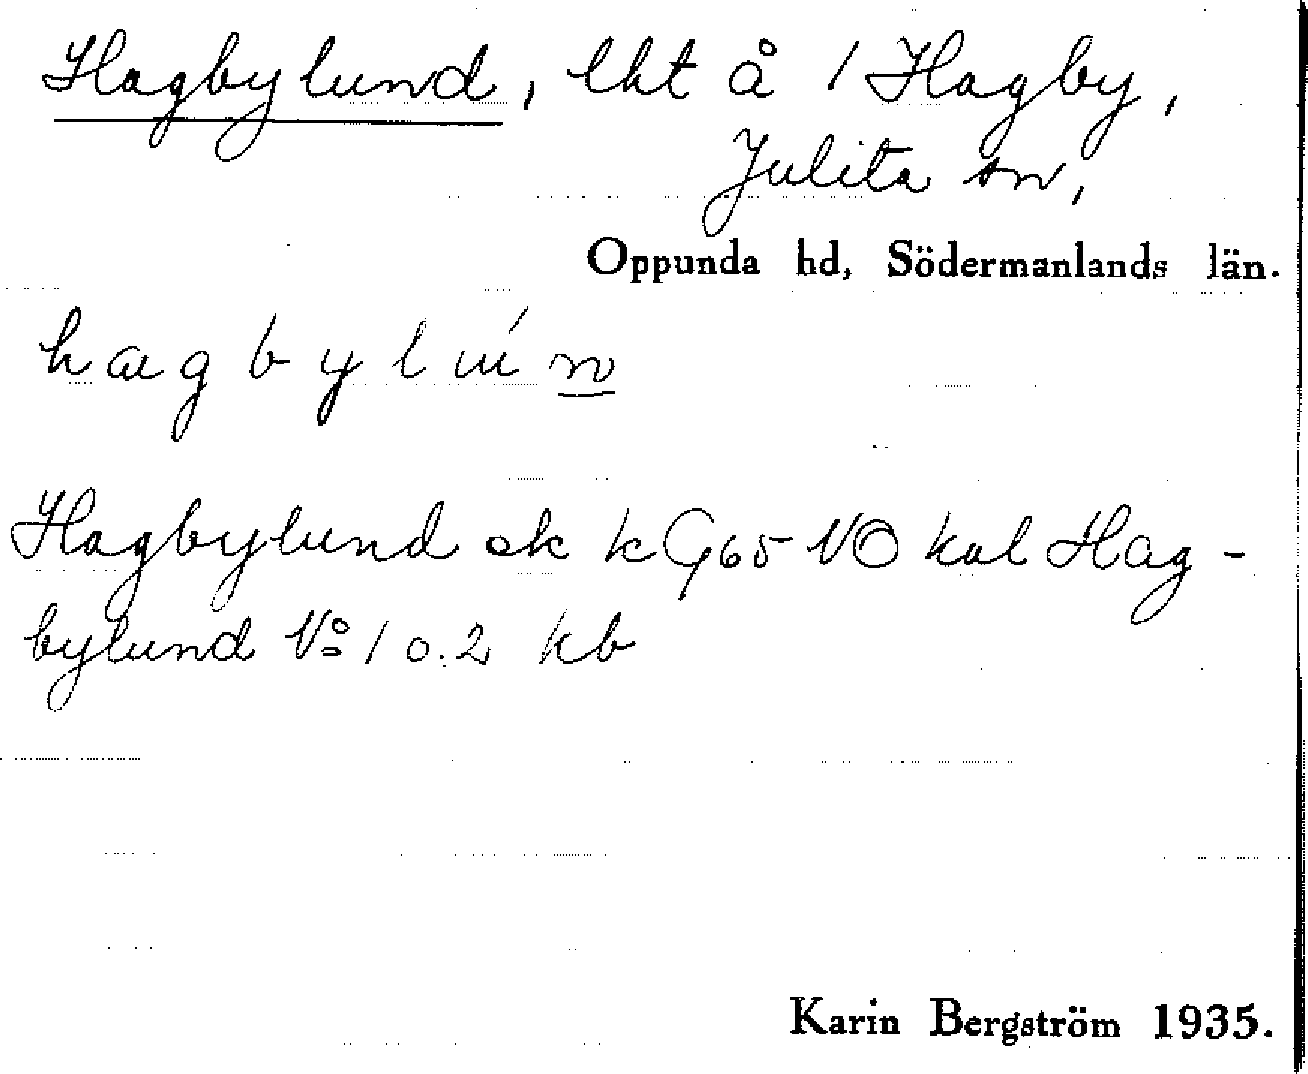 Hagbylund, lht å 1 Hagby,
Julita sn,
Oppunda hd, Södermanlands län.
hagbylún
Hagbylund ek k G65 NO kal Hag-
bylund No 1 o. 2 kb
Karin Bergström 1935.